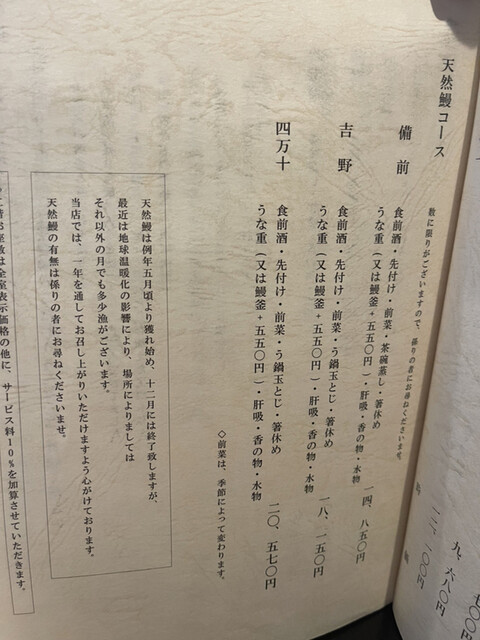 天然鰻コース
数に限りがございますので、係りの者にお尋ねくださいませ。
備前
食前酒・先付け・前菜・茶碗蒸し・箸休め
うな重(又は鰻釜+五五〇円)・肝吸・香の物・水物
一四、八五〇円
吉野
食前酒・先付け・前菜・う鍋玉とじ・箸休め
うな重(又は鰻釜+五五〇円)・肝吸・香の物・水物
一八、一五〇円
四万十
食前酒・先付け・前菜・う鍋玉とじ・箸休め
うな重(又は鰻釜+五五〇円)・肝吸・香の物・水物
二〇、五七〇円
◇前菜は、季節によって変わります。
天然鰻は例年五月頃より獲れ始め、十二月には終了致しますが、
最近は地球温暖化の影響により、場所によりましては
それ以外の月でも多少漁がございます。
当店では、一年を通してお召し上がりいただけますよう心がけております。
天然鰻の有無は係りの者にお尋ねくださいませ。
お座敷は全室表示価格の他に、サービス料10%を加算させていただきます。
九、六八〇円